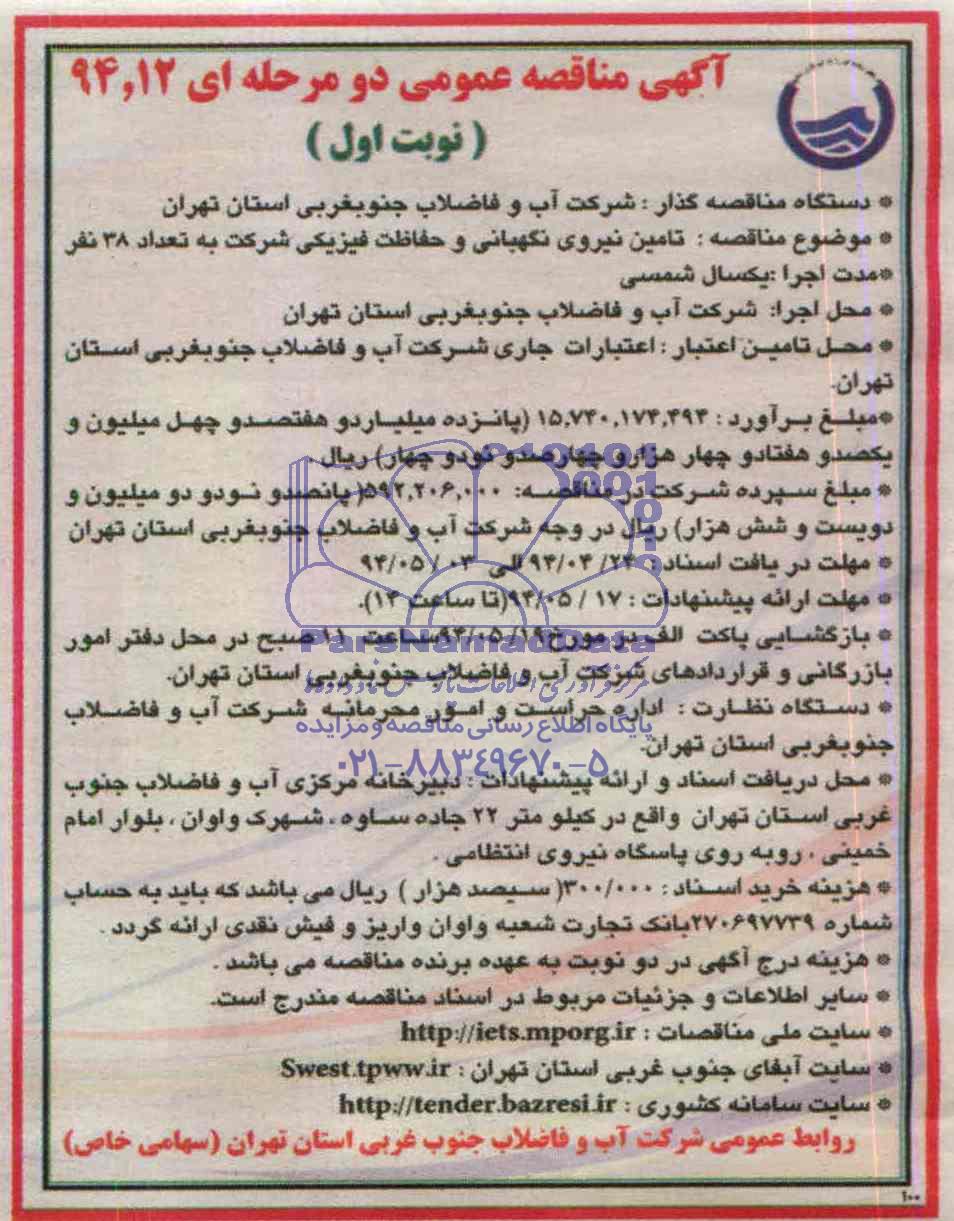 آگهی مناقصه عمومی دو مرحله ای ۹۴,۱۲
( نوبت اول )
* دستگاه مناقصه گذار : شرکت آب و فاضلاب جنوبغربی استان تهران
* موضوع مناقصه : تامین نیروی نگهبانی و حفاظت فیزیکی شرکت به تعداد ۳۸ نفر
*مدت اجرا :یکسال شمسی
* محل اجرا: شرکت آب و فاضلاب جنوبغربی استان تهران
* محل تامین اعتبار : اعتبارات جاری شرکت آب و فاضلاب جنوبغربی استان
تهران.
*مبلغ برآورد : ۱۵,۷۴۰,۱۷۴,۴۹۴ (پانزده میلیاردو هفتصدو چهل میلیون و
یکصدو هفتادو چهار هزارو چهارصدو نودو چهار) ریال .
* مبلغ سپرده شرکت در مناقصه: ۵۹۲,۲۰۶,۰۰۰( پانصدو نودو دو میلیون و
دویست و شش هزار) ریال در وجه شرکت آب و فاضلاب جنوبغربی استان تهران
* مهلت در یافت اسناد : ۹۴/۰۴ /۲۴ الی ۰۳ / ۹۴/۰۵
* مهلت ارائه پیشنهادات : ۱۷ / ۹۴/۰۵(تا ساعت ۱۴).
* بازگشایی پاکت الف در مورخ ۹۴/۰۵/۱۹ساعت ۱۱ صبح در محل دفتر امور
بازرگانی و قراردادهای شرکت آب و فاضلاب جنوبغربی استان تهران.
* دستگاه نظارت : اداره حراست و امور محرمانه شرکت آب و فاضلاب
جنوبغربی استان تهران.
* محل دریافت اسناد و ارائه پیشنهادات : دبیرخانه مرکزی آب و فاضلاب جنوب
غربی استان تهران واقع در کیلو متر ۲۲ جاده ساوه ، شهرک واوان ، بلوار امام
خمینی ، روبه روی پاسگاه نیروی انتظامی .
* هزینه خرید اسناد : ۳۰۰/۰۰۰( سیصد هزار ) ریال می باشد که باید به حساب
شماره ۲۷۰۶۹۷۷۳۹بانک تجارت شعبه واوان واریز و فیش نقدی ارائه گردد .
* هزینه درج آگهی در دو نوبت به عهده برنده مناقصه می باشد .
* سایر اطلاعات و جزئیات مربوط در اسناد مناقصه مندرج است.
* سایت ملی مناقصات : http://iets.mporg.ir
* سایت آبفای جنوب غربی استان تهران : Swest.tpww.ir
* سایت سامانه کشوری : http://tender.bazresi.ir
روابط عمومی شرکت آب و فاضلاب جنوب غربی استان تهران (سهامی خاص)
۱۰۰
ParsNamadData
پایگاه اطلاع رسانی مناقصه و مزایده
۰۲۱-۸۸۳۴۹۶۷۰-۵